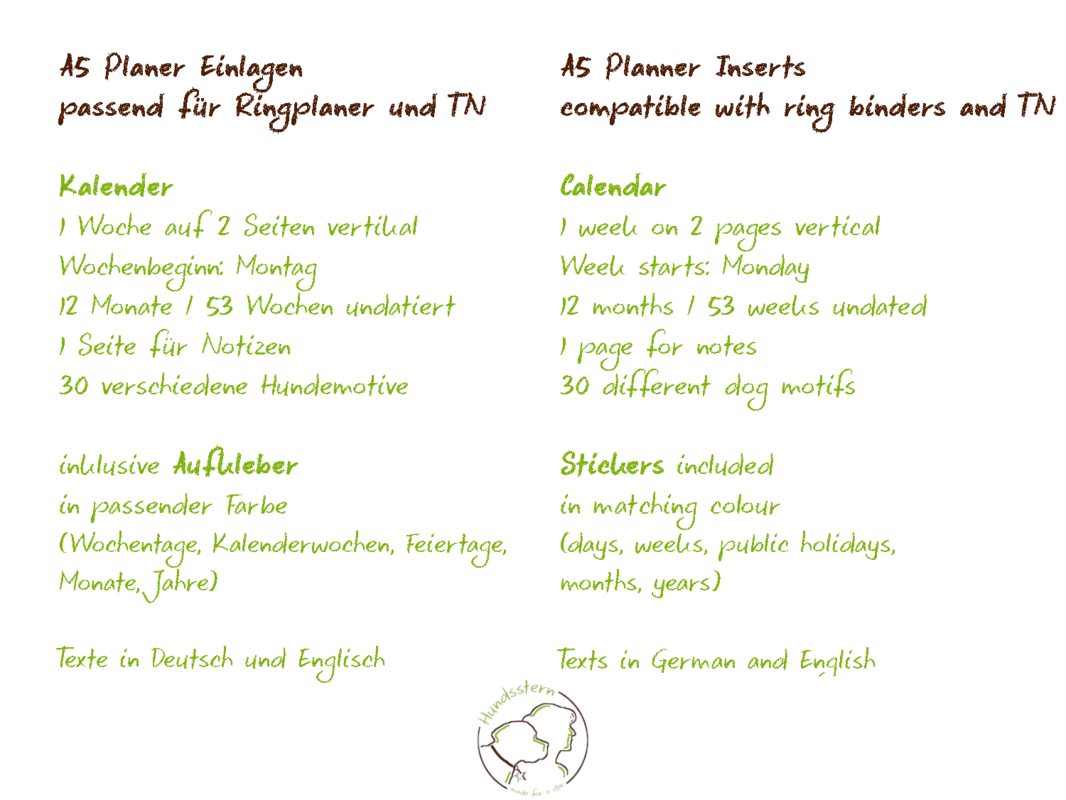 A5 Planer Einlagen
passend für Ringplaner und TN
Kalender
1 Woche auf 2 Seiten vertikal
Wochenbeginn: Montag
12 Monate / 53 Wochen undatiert
1 Seite für Notizen
30 verschiedene Hundemotive
inklusive Aufkleber
in passender Farbe
(Wochentage, Kalenderwochen, Feiertage,
Monate, Jahre)
Texte in Deutsch und Englisch
A5 Planner Inserts
compatible with ring binders and TN
Calendar
1 week on 2 pages vertical
Week starts: Monday
12 months / 53 weeks undated
1 page for notes
30 different dog motifs
Stickers included
in matching colour
(days, weeks, public holidays,
months, years)
Texts in German and English
Hundsstern
made for a star